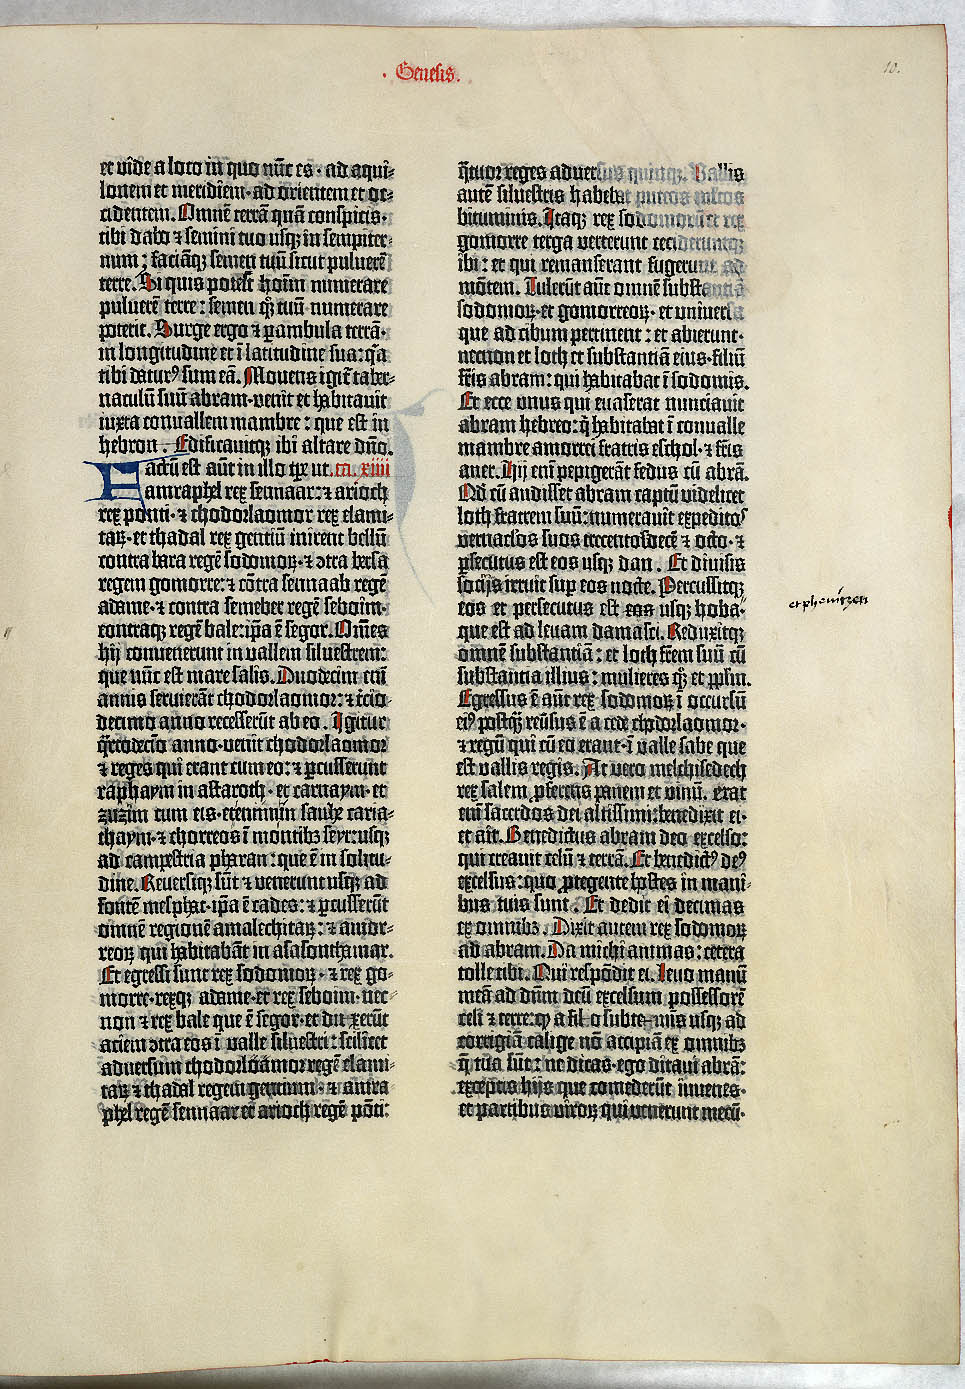 · Genesis .
10.
et vide a loco in quo nūc es · ad aqui-
lonem et meridiem · ad orientem et oc-
cidentem. Omnē terrā quā conspicis ·
tibi dabo ⁊ semini tuo usq; in sempiter-
num; faciāq; semen tuū sicut pulverē
terre. Si quis potest hoīm numerare
pulverē terre: semen q̄; tuū numerare
poterit. Surge ergo ⁊ perambula terrā ·
in longitudine et ī latitudine sua: q̄a
tibi daturꝰ sum eā. Movens igit̄ taber-
naculū suū abram · venit et habitavit
iuxta convallem mambre: que est in
hebron. Edificavitq; ibi altare dn̄o.
actū est aūt in illo tp̄e ut . ca. xiiii
F amraphel rex sennaar: ⁊ arioch
rex ponti · ⁊ chodorlaomor rex elami-
taꝝ · et thadal rex gentiū inirent bellū
contra bara regē sodomoꝝ · ⁊ ꝯtra bersa
regem gomorre: ⁊ cōtra sennaab regē
adame · ⁊ contra semeber regē seboim ·
contraq; regē bale: ip̄a ē segor. Om̄es
hij convenerunt in vallem silvestrem:
que nūc est mare salis. Duodecim enī
annis servierāt chodorlaomor: ⁊ t̄cio
decimo anno recesserūt ab eo. Igitur
q̄rtodecīo anno · venit chodorlaomor
⁊ reges qui erant cum eo: ⁊ ꝑcusserunt
raphaym in astaroth · et carnaym · et
zuzim cum eis · et emim in sauhe caria-
thaym · ⁊ chorreos ī montibꝫ seyr: usq;
ad campestria pharan: que ē in solitu-
dine. Reversiq; sūt ⁊ venerunt usq; ad
fontē mesphat · ip̄a ē cades: ⁊ ꝑcusserūt
omnē regionē amalechitaꝝ: ⁊ amor-
reoꝝ qui habitabāt in asasonthamar.
Et egressi sunt rex sodomoꝝ · ⁊ rex go-
morre · rexq; adame · et rex seboim · nec-
non ⁊ rex bale que ē segor · et direxerūt
aciem ꝯtra eos ī valle silvestri: scilicet
adversum chodorlaamor regē elami-
taꝝ ⁊ thadal regem gentium · ⁊ amra-
phel regē sennaar et arioch regē pōti:
q̄tuor reges adversus quinq;. Vallis
autē silvestris habebat puteos multos
bituminis. Itaq; rex sodomorū et rex
gomorre terga verterunt cecideruntq;
ibi: et qui remanserant fugerunt ad
mōtem. Tulerūt aūt omnē substantiā
sodomoꝝ · et gomorreoꝝ · et universa
que ad cibum pertinent: et abierunt ·
necnon et loth et substantiā eius · filiū
fr̄is abram: qui habitabat ī sodomis.
Et ecce unus qui evaserat nunciavit
abram hebreo: q̄ habitabat ī convalle
mambre amorrei fratris eschol · ⁊ fr̄is
aner. Hij enī pepigerāt fedus cū abrā.
Qd̄ cū audisset abram captū videlicet
loth fratrem suū: numeravit expeditoſ
vernaclos suos trecentosdecē ⁊ octo · ⁊
ꝑsecutus est eos usq; dan. Et divisis
socijs irruit sup̄ eos nocte. Percussitq;
eos et persecutus est eos usq; hoba ·
et phenitzen
que est ad levam damasci. Reduxitq;
omnē substantiā: et loth fr̄em suū cū
substantia illius: mulieres q̄; et pp̄lm.
Egressus ē aūt rex sodomoꝝ ī occursū
eiꝰ postq̄; rev̄sus ē a cede chodorlaomor ·
⁊ regū qui cū eo erant · ī valle sabe que
est vallis regis. At vero melchisedech
rex salem, ꝓferens panem et vinū. erat
enī sacerdos dei altissimi: benedixit ei ·
et ait. Benedictus abram deo excelso:
qui creavit celū ⁊ terrā. Et benedictꝰ deꝰ
excelsus: quo ꝓtegente hostes in mani-
bus tuis sunt. Et dedit ei decimas
ex omnibꝫ. Dixit autem rex sodomoꝝ
ad abram. Da michi animas: cetera
tolle tibi. Qui respōdit ei. Levo manū
meā ad dn̄m deū excelsum possessorē
celi ⁊ terre: ꝙ a filo subtegminis usq; ad
corrigiā calige nō accipiā ex omnibꝫ
q̄ tua sūt: ne dicas · ego ditavi abrā:
exceptis hijs que comederūt iuvenes ·
et partibus viroꝝ qui venerunt mecū ·